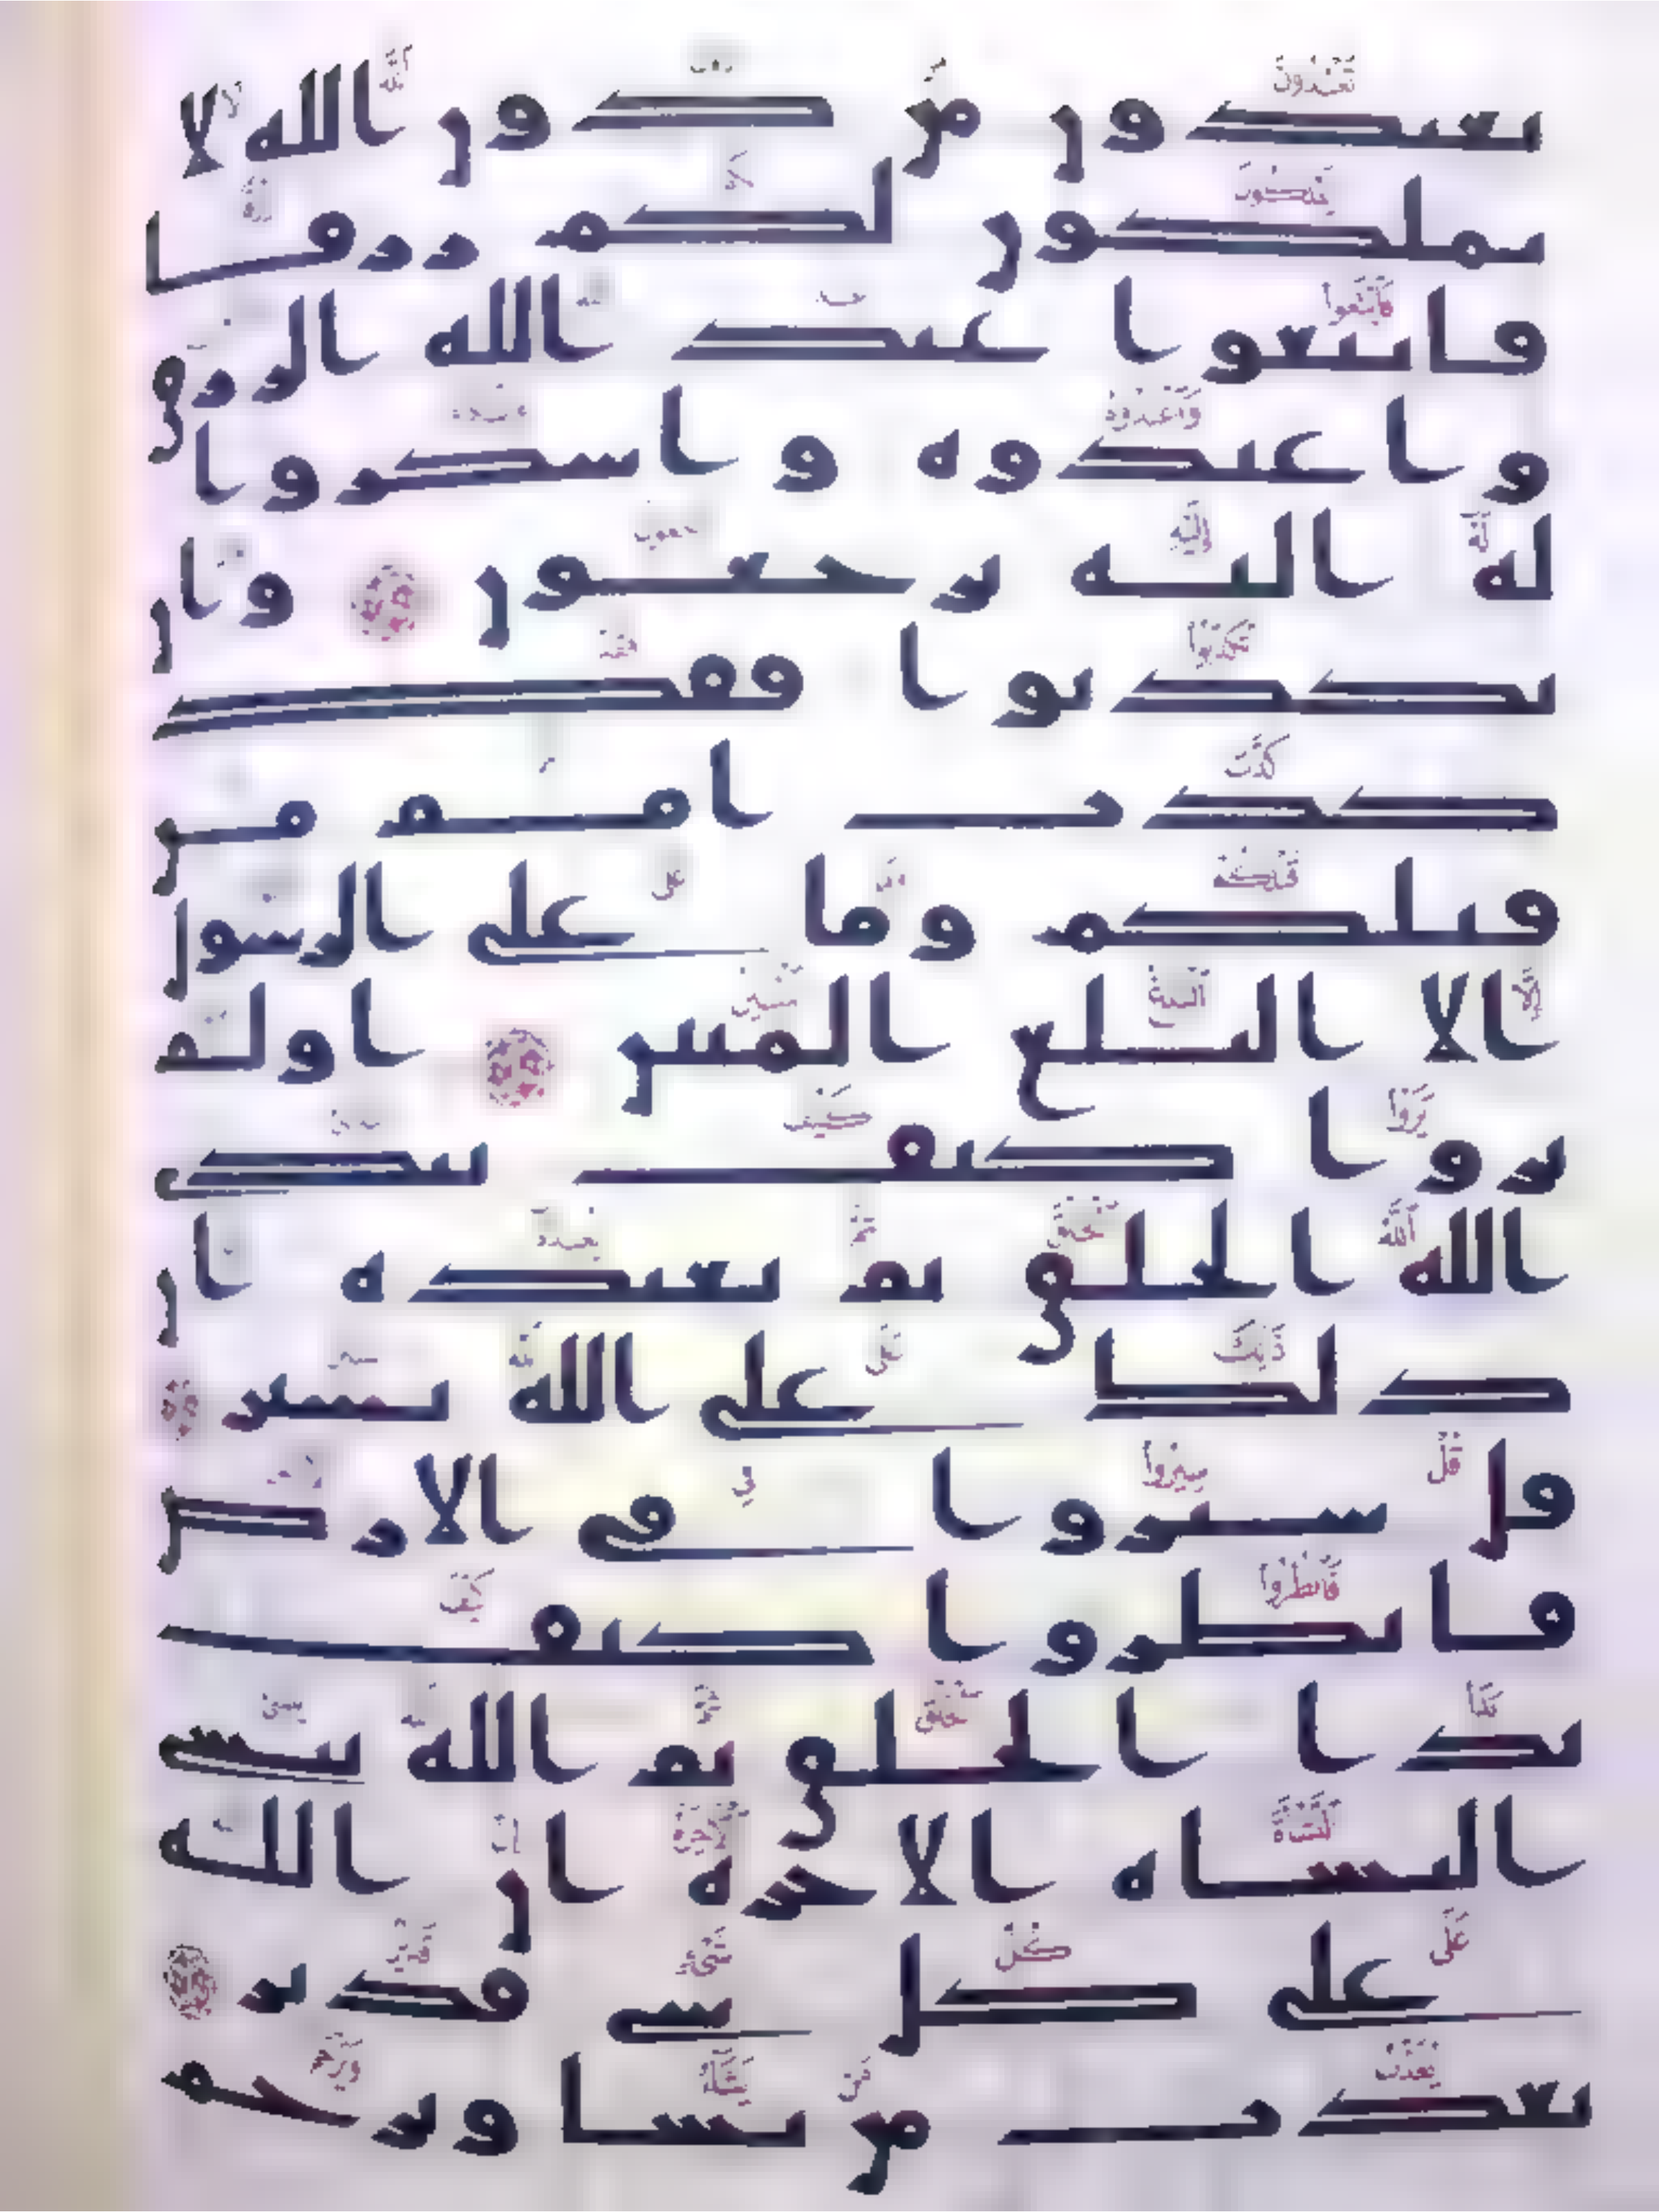 تعبدون من دون الله لا
يملكون لكم رزقا
فابتغوا عند الله الرزق
واعبدوه واشكروا
له اليه ترجعون وان
تكذبوا فقد
كذب امم من
قبلكم وما على الرسول
الا البلغ المبين اولم
يروا كيف يبدى
الله الخلق ثم يعيده ان
ذلك على الله يسير
قل سيروا فى الارض
فانظروا كيف
بدا الخلق ثم الله ينشى
النشاه الاخره ان الله
على كل شى قدير
يعذب من يشا ويرحم